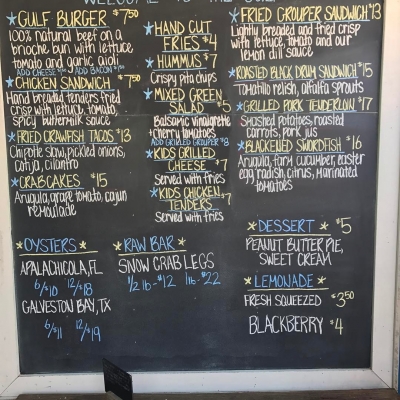 WELCOME TO THE GULF
GULF BURGER $7.50
100% natural beef on a
brioche bun with lettuce
tomato and garlic aioli
ADD CHEESE ADD BACON
CHICKEN SANDWICH $7.50
Hand breaded tenders fried
crisp with lettuce, tomato,
spicy buttermilk sauce
FRIED CRAWFISH TACOS $13
Chipotle slaw, pickled onions,
cotija, cilantro
CRABCAKES $15
Arugula, grape tomato, cajun
remoulade
HAND CUT
FRIES $4
HUMMUS $7
Crispy pita chips
MIXED GREEN
SALAD $5
Balsamic vinaigrette
+ cherry tomatoes
ADD GRILLED GROUPER $8
KIDS GRILLED
CHEESE $7
Served with fries
KIDS CHICKEN
TENDERS $7
Served with fries
FRIED GROUPER SANDWICH $13
Lightly breaded and fried crisp
with lettuce, tomato and our
lemon dill sauce
ROASTED BLACK DRUM SANDWICH $15
Tomatillo relish, alfalfa sprouts
GRILLED PORK TENDERLOIN $17
Smashed potatoes, roasted
carrots, pork jus
BLACKENED SWORDFISH $16
Arugula, farm cucumber, easter
egg radish, citrus, marinated
tomatoes
OYSTERS
APALACHICOLA, FL
6/$10 12/$18
GALVESTON BAY, TX
6/$11 12/$19
RAW BAR
SNOW CRAB LEGS
1/2 lb - $12 1 lb - $22
DESSERT $5
PEANUT BUTTER PIE,
SWEET CREAM
LEMONADE
FRESH SQUEEZED $3.50
BLACKBERRY $4